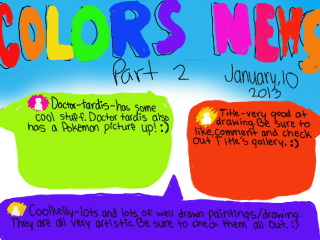 COLORS NEWS
Part 2
January,10
2013
Doctor-tardis-has some
cool stuff. Doctor tardis also
has a Pokemon picture up! :)
Title-very good at
drawing. Be sure to
like, comment and check
out Title's gallery. :)
Coolkelly-lots and lots of well drawn paintings/drawing.
They are all very artistic. Be sure to check them all out. :)